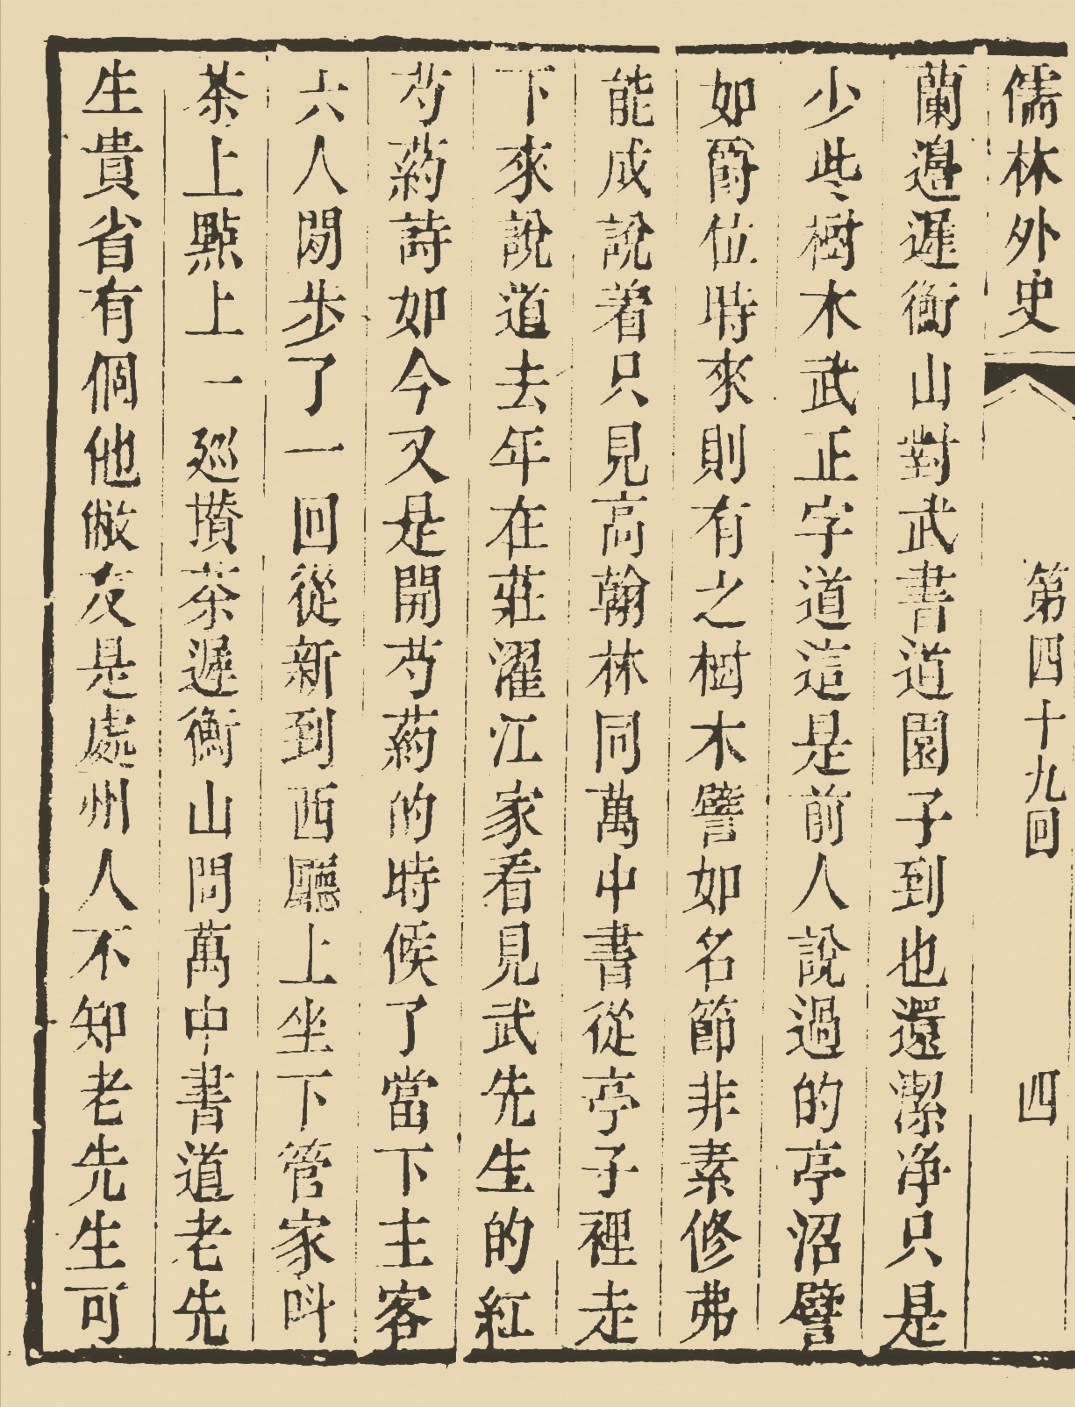 儒林外史 第四十九回 四
蘭邉遲衡山對武書道園子到也還潔净只是
少些樹木武正字道這是前人說過的亭沼譬
如爵位時來則有之樹木譬如名節非素修弗
能成說着只見高翰林同萬中書從亭子裡走
下來說道去年在莊濯江家看見武先生的紅
芍藥詩如今又是開芍藥的時候了當下主客
六人閒步了一回從新到西廳上坐下管家叫
茶上點上一廵攅茶遲衡山問萬中書道老先
生貴省有個他敝友是處州人不知老先生可